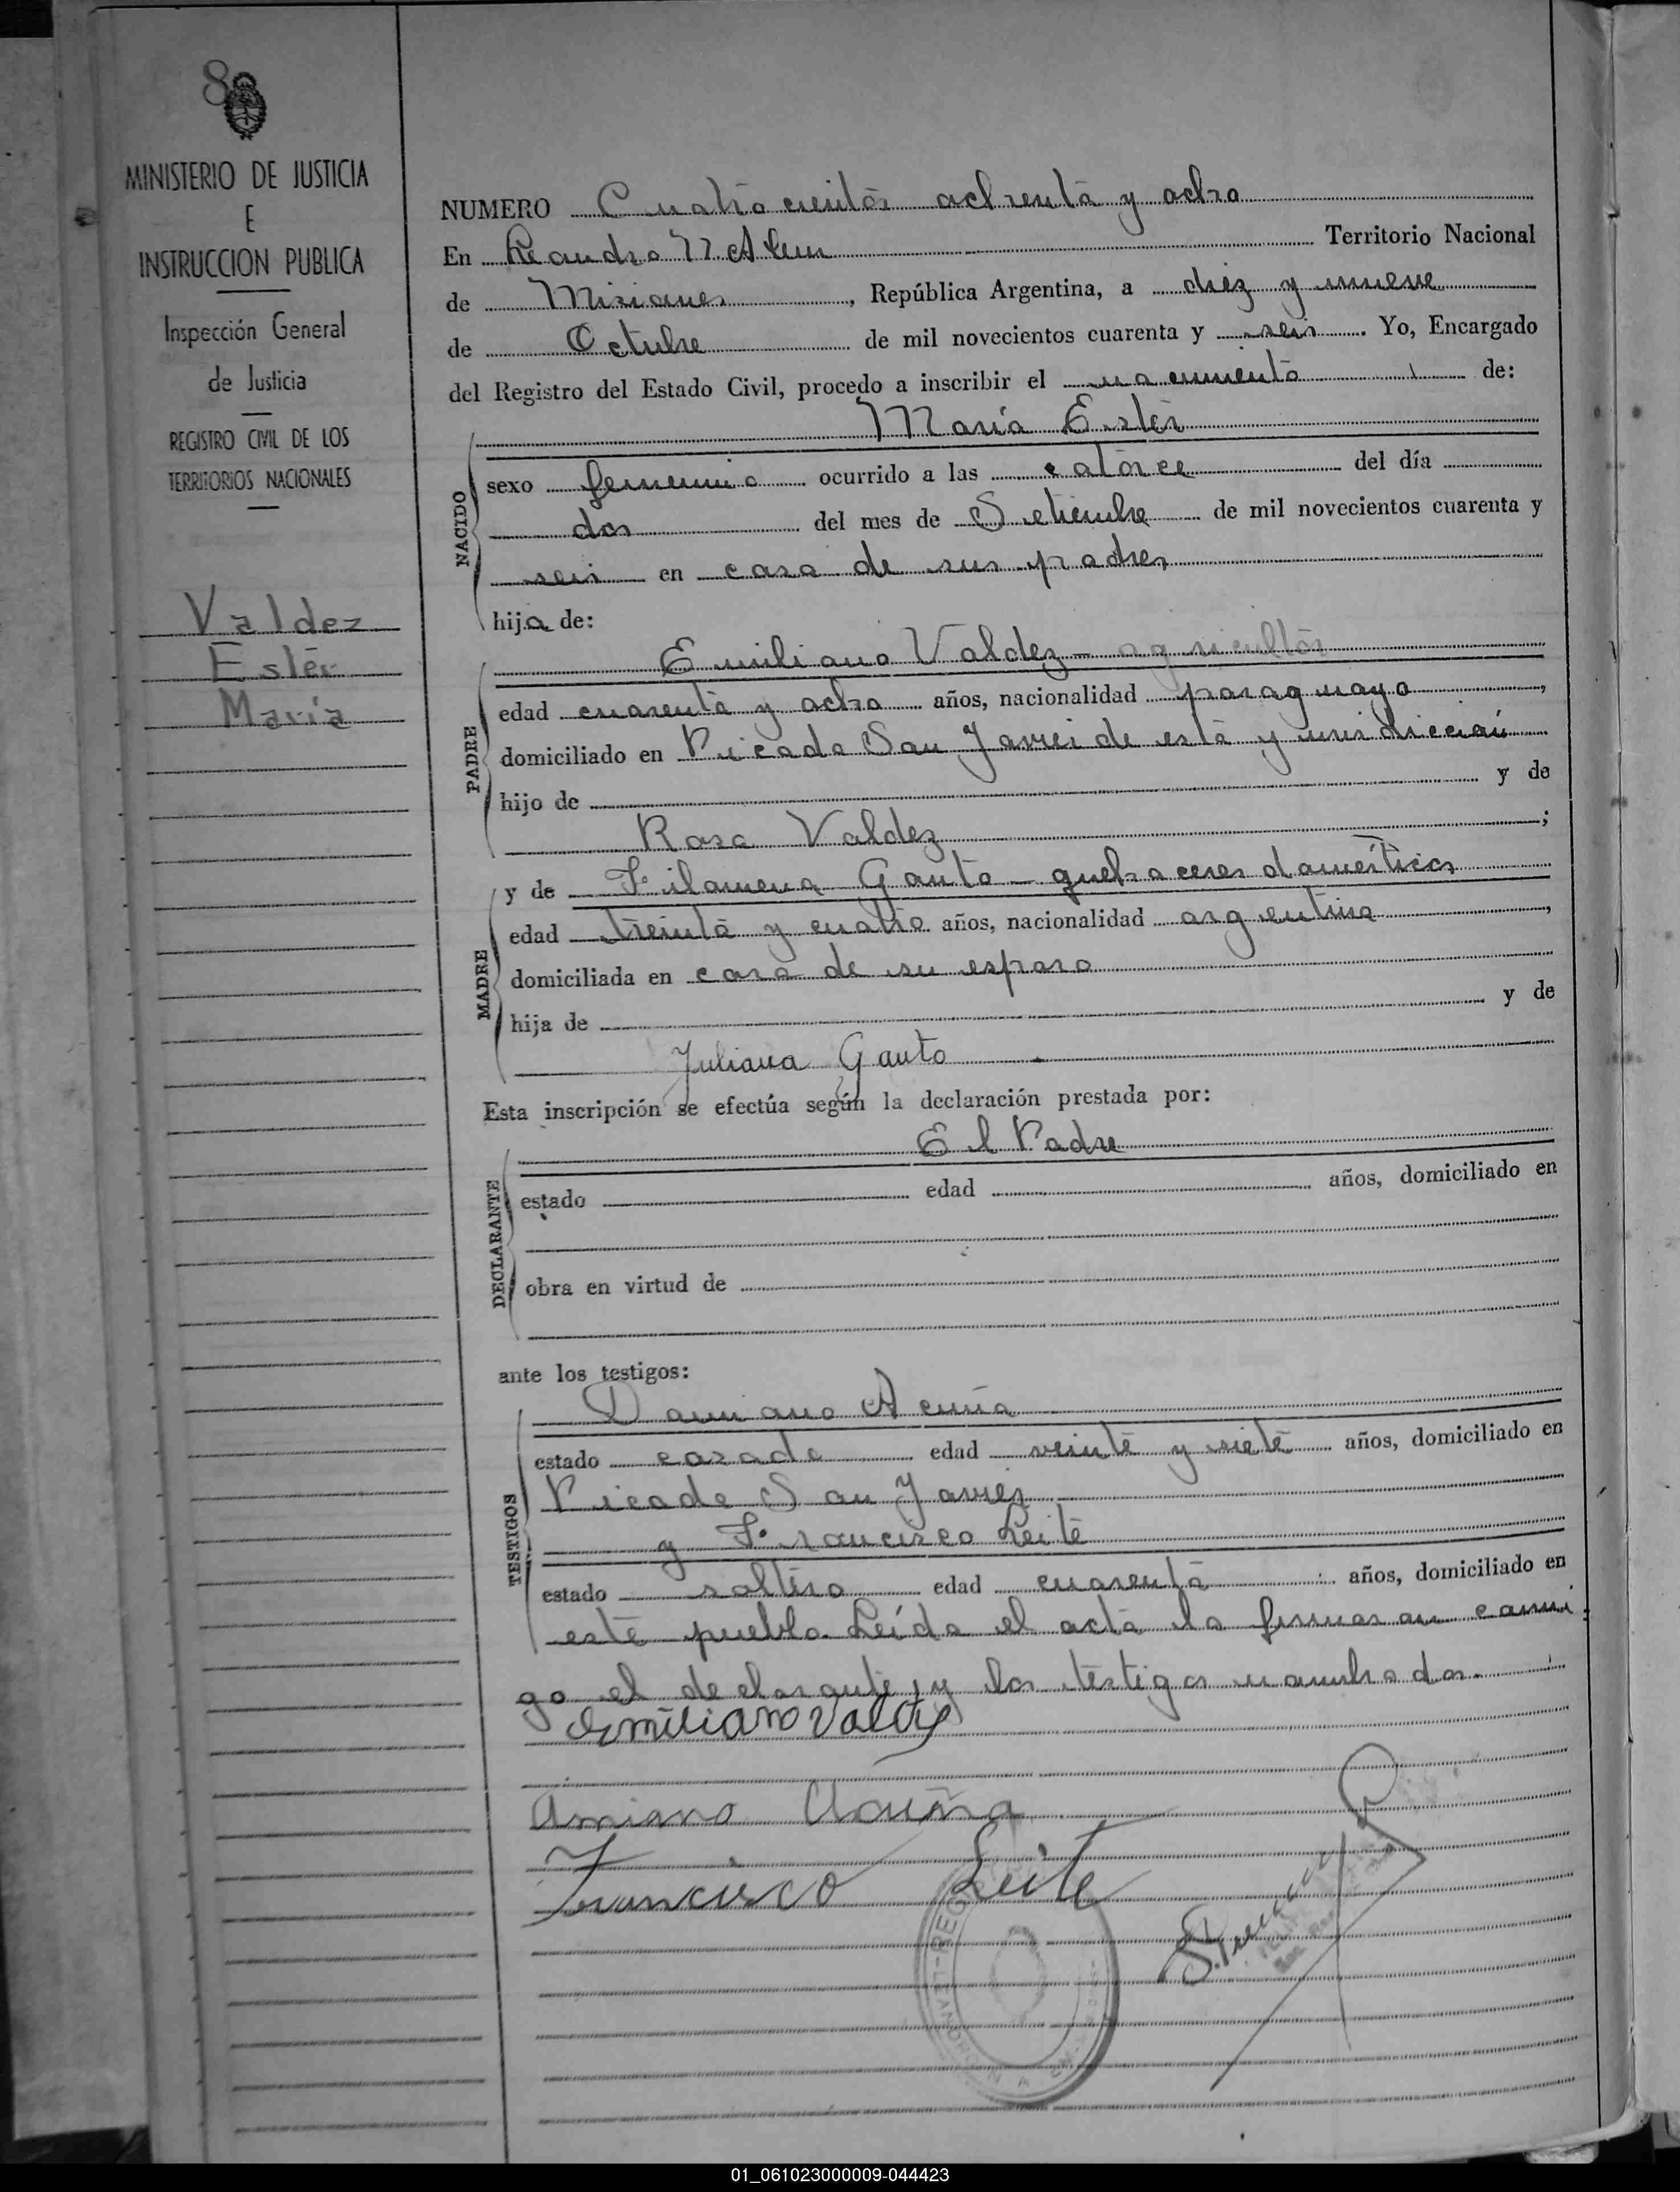 8
MINISTERIO DE JUSTICIA
E
INSTRUCCION PUBLICA
Inspección General
de Justicia
REGISTRO CIVIL DE LOS
TERRITORIOS NACIONALES
Valdez
Ester
María
NUMERO Cuatrocientos ochenta y ocho
En Leandro N Alem Territorio Nacional
de Misiones, República Argentina, a diez y nueve
de Octubre de mil novecientos cuarenta y seis. Yo, Encargado
del Registro del Estado Civil, procedo a inscribir el nacimiento de:
María Ester
NACIDO
sexo femenino ocurrido a las catorce del día
dos del mes de Setiembre de mil novecientos cuarenta y
seis en casa de sus padres
hija de:
PADRE
Emiliano Valdez - agricultor
edad cuarenta y ocho años, nacionalidad paraguayo,
domiciliado en Picada San Javier de esta yurisdicción
hijo de y de
Rosa Valdez;
MADRE
y de Filomena Gauto - quehaceres domésticos
edad treinta y cuatro años, nacionalidad argentina,
domiciliada en casa de su esposo
hija de y de
Juliana Gauto
Esta inscripción se efectúa según la declaración prestada por:
DECLARANTE
El Padre
estado edad años, domiciliado en
obra en virtud de
ante los testigos:
TESTIGOS
Damiano Acuña
estado casado edad veinte y siete años, domiciliado en
Picada San Javier
y Francisco Leite
estado soltero edad cuarenta años, domiciliado en
este pueblo. Leída el acta la firmaron conmi
go el declarante y los testigos nombrados.
Emiliano Valdez
Amiano Acuña
Francisco Leite
01_061023000009-044423